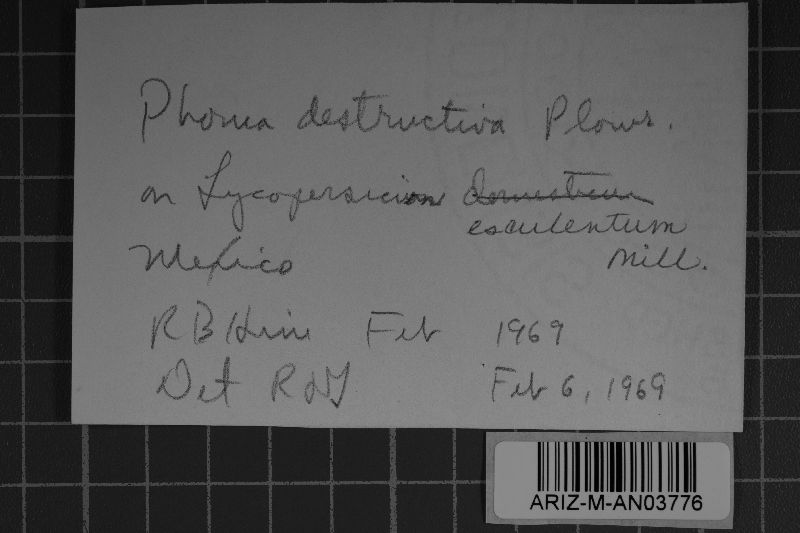 Phoma destructiva Plowr.
on Lycopersicion domesticum
esculentum
Mill.
Mexico
RB Hine Feb 1969
Det Feb 6, 1969
ARIZ-M-AN03776